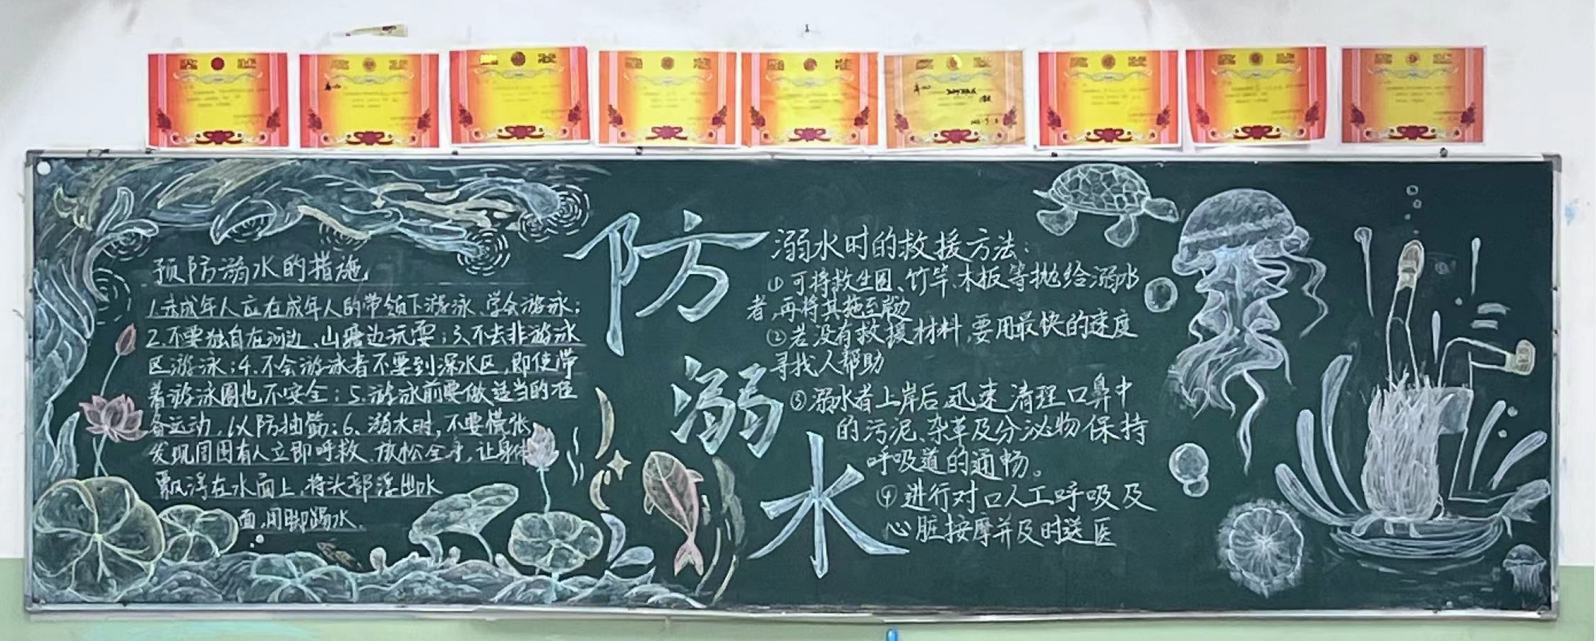 预防溺水的措施
1.未成年人应在成年人的带领下游泳、学会游泳;
2.不要独自在河边、山塘边玩耍;3.不去非游泳
区游泳;4.不会游泳者不要到深水区,即使带
着游泳圈也不安全;5.游泳前要做适当的准
备运动,以防抽筋;6.溺水时,不要慌张,
发现周围有人立即呼救,放松全身,让身体
飘浮在水面上,将头部浮出水
面,用脚踢水
防
溺
水
溺水时的救援方法:
①可将救生圈、竹竿、木板等抛给溺水
者,再将其拖至
②若没有救援材料,要用最快的速度
寻找人帮助
③溺水者上岸后,迅速清理口鼻中
的污泥、杂草及分泌物保持
呼吸道的通畅。
④进行对口人工呼吸及
心脏按摩并及时送医